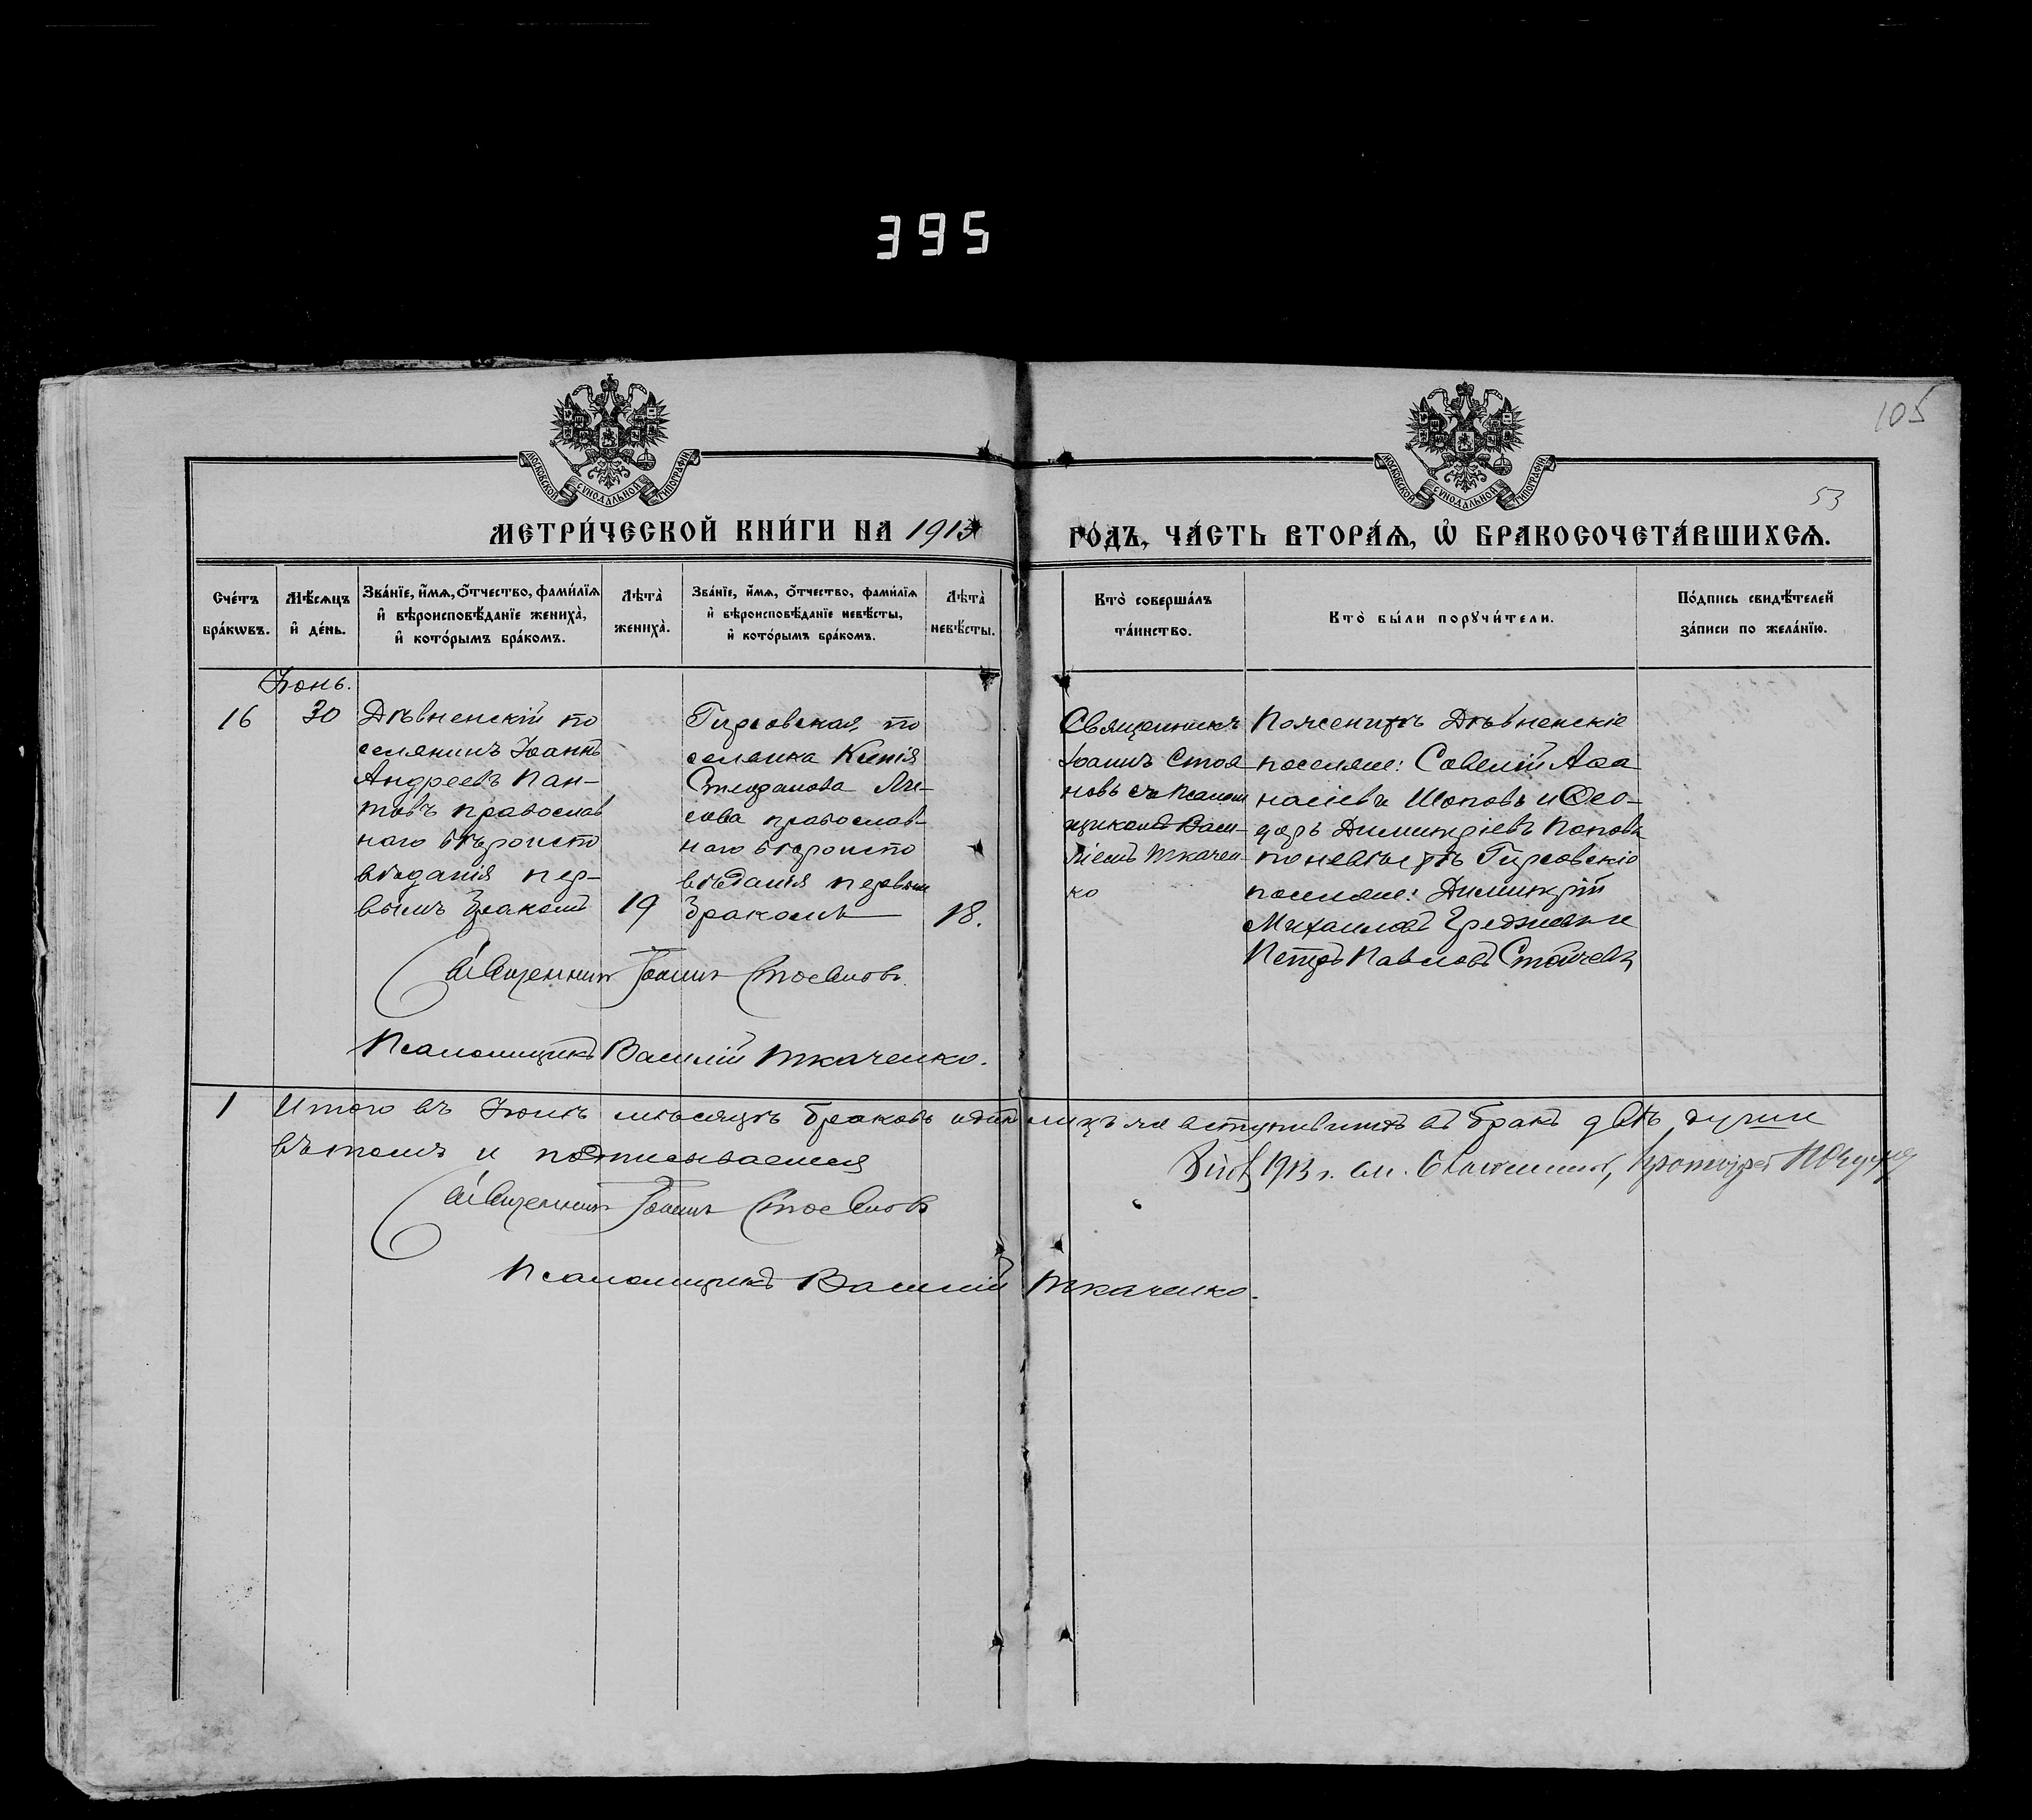 395
105
53
МОСКОВСКОЙ СѴНОДАЛЬНОЙ ТИПОГРАФІИ
МОСКОВСКОЙ СѴНОДАЛЬНОЙ ТИПОГРАФІИ
МЕТРИ́ЧЕСКОЙ КНИ́ГИ НА 1913 ГО́ДЪ, ЧА́СТЬ ВТОРА́Ѧ, Ѡ БРАКОСОЧЕТА́ВШИХСѦ.
Сче́тъ бра́кѡвъ.
Мѣ́сѧцъ и҆ де́нь.
Зва́нїе, и҆́мѧ, ѻ҆́тчество, фами́лїѧ
и҆ вѣроисповѣ́данїе жениха̀,
и҆ кото́рымъ бра́комъ.
Лѣта̀ жениха̀.
Зва́нїе, и҆́мѧ, ѻ҆́тчество, фами́лїѧ
и҆ вѣроисповѣ́данїе невѣ́сты,
и҆ кото́рымъ бра́комъ.
Лѣта̀ невѣ́сты.
Кто̀ соверша́лъ
та́инство.
Кто̀ бы́ли порꙋчи́тели.
По́дпись свидѣ́телей
за́писи по жела́нїю.
Іюнь.
16
30
Дѣвненскій по
селянинъ Іоаннъ
Андреевъ Пан-
товъ православ
наго вѣроиспо
вѣданія пер-
вымъ бракомъ
19
Гирсовская по
селянка
Стефанова
сова православ-
наго вѣроиспо
вѣданія первым
бракомъ
18.
Священникъ
Іоаннъ Стоя
новъ съ Псалом
щикомъ Васи-
ліемъ Ткачен-
ко
По женихѣ Дѣвненскіе
поселяне: Савелій Аѳа
насіевъ Шоповъ и Ѳео-
доръ Димитріевъ Поповъ
по невѣстѣ Гирсовскіе
поселяне: Димитрій
Михаиловъ и
Петръ Павловъ Стойчевъ
Священникъ Іоаннъ Стояновъ.
Псаломщикъ Василій Ткаченко.
1
Итого въ Іюнѣ мѣсяцѣ браковъ одинъ лицъ же вступившихъ въ бракъ двѣ души
въ томъ и подписываемся
1913 г. Протоіерей
Священникъ Іоаннъ Стояновъ
Псаломщикъ Василій Ткаченко.